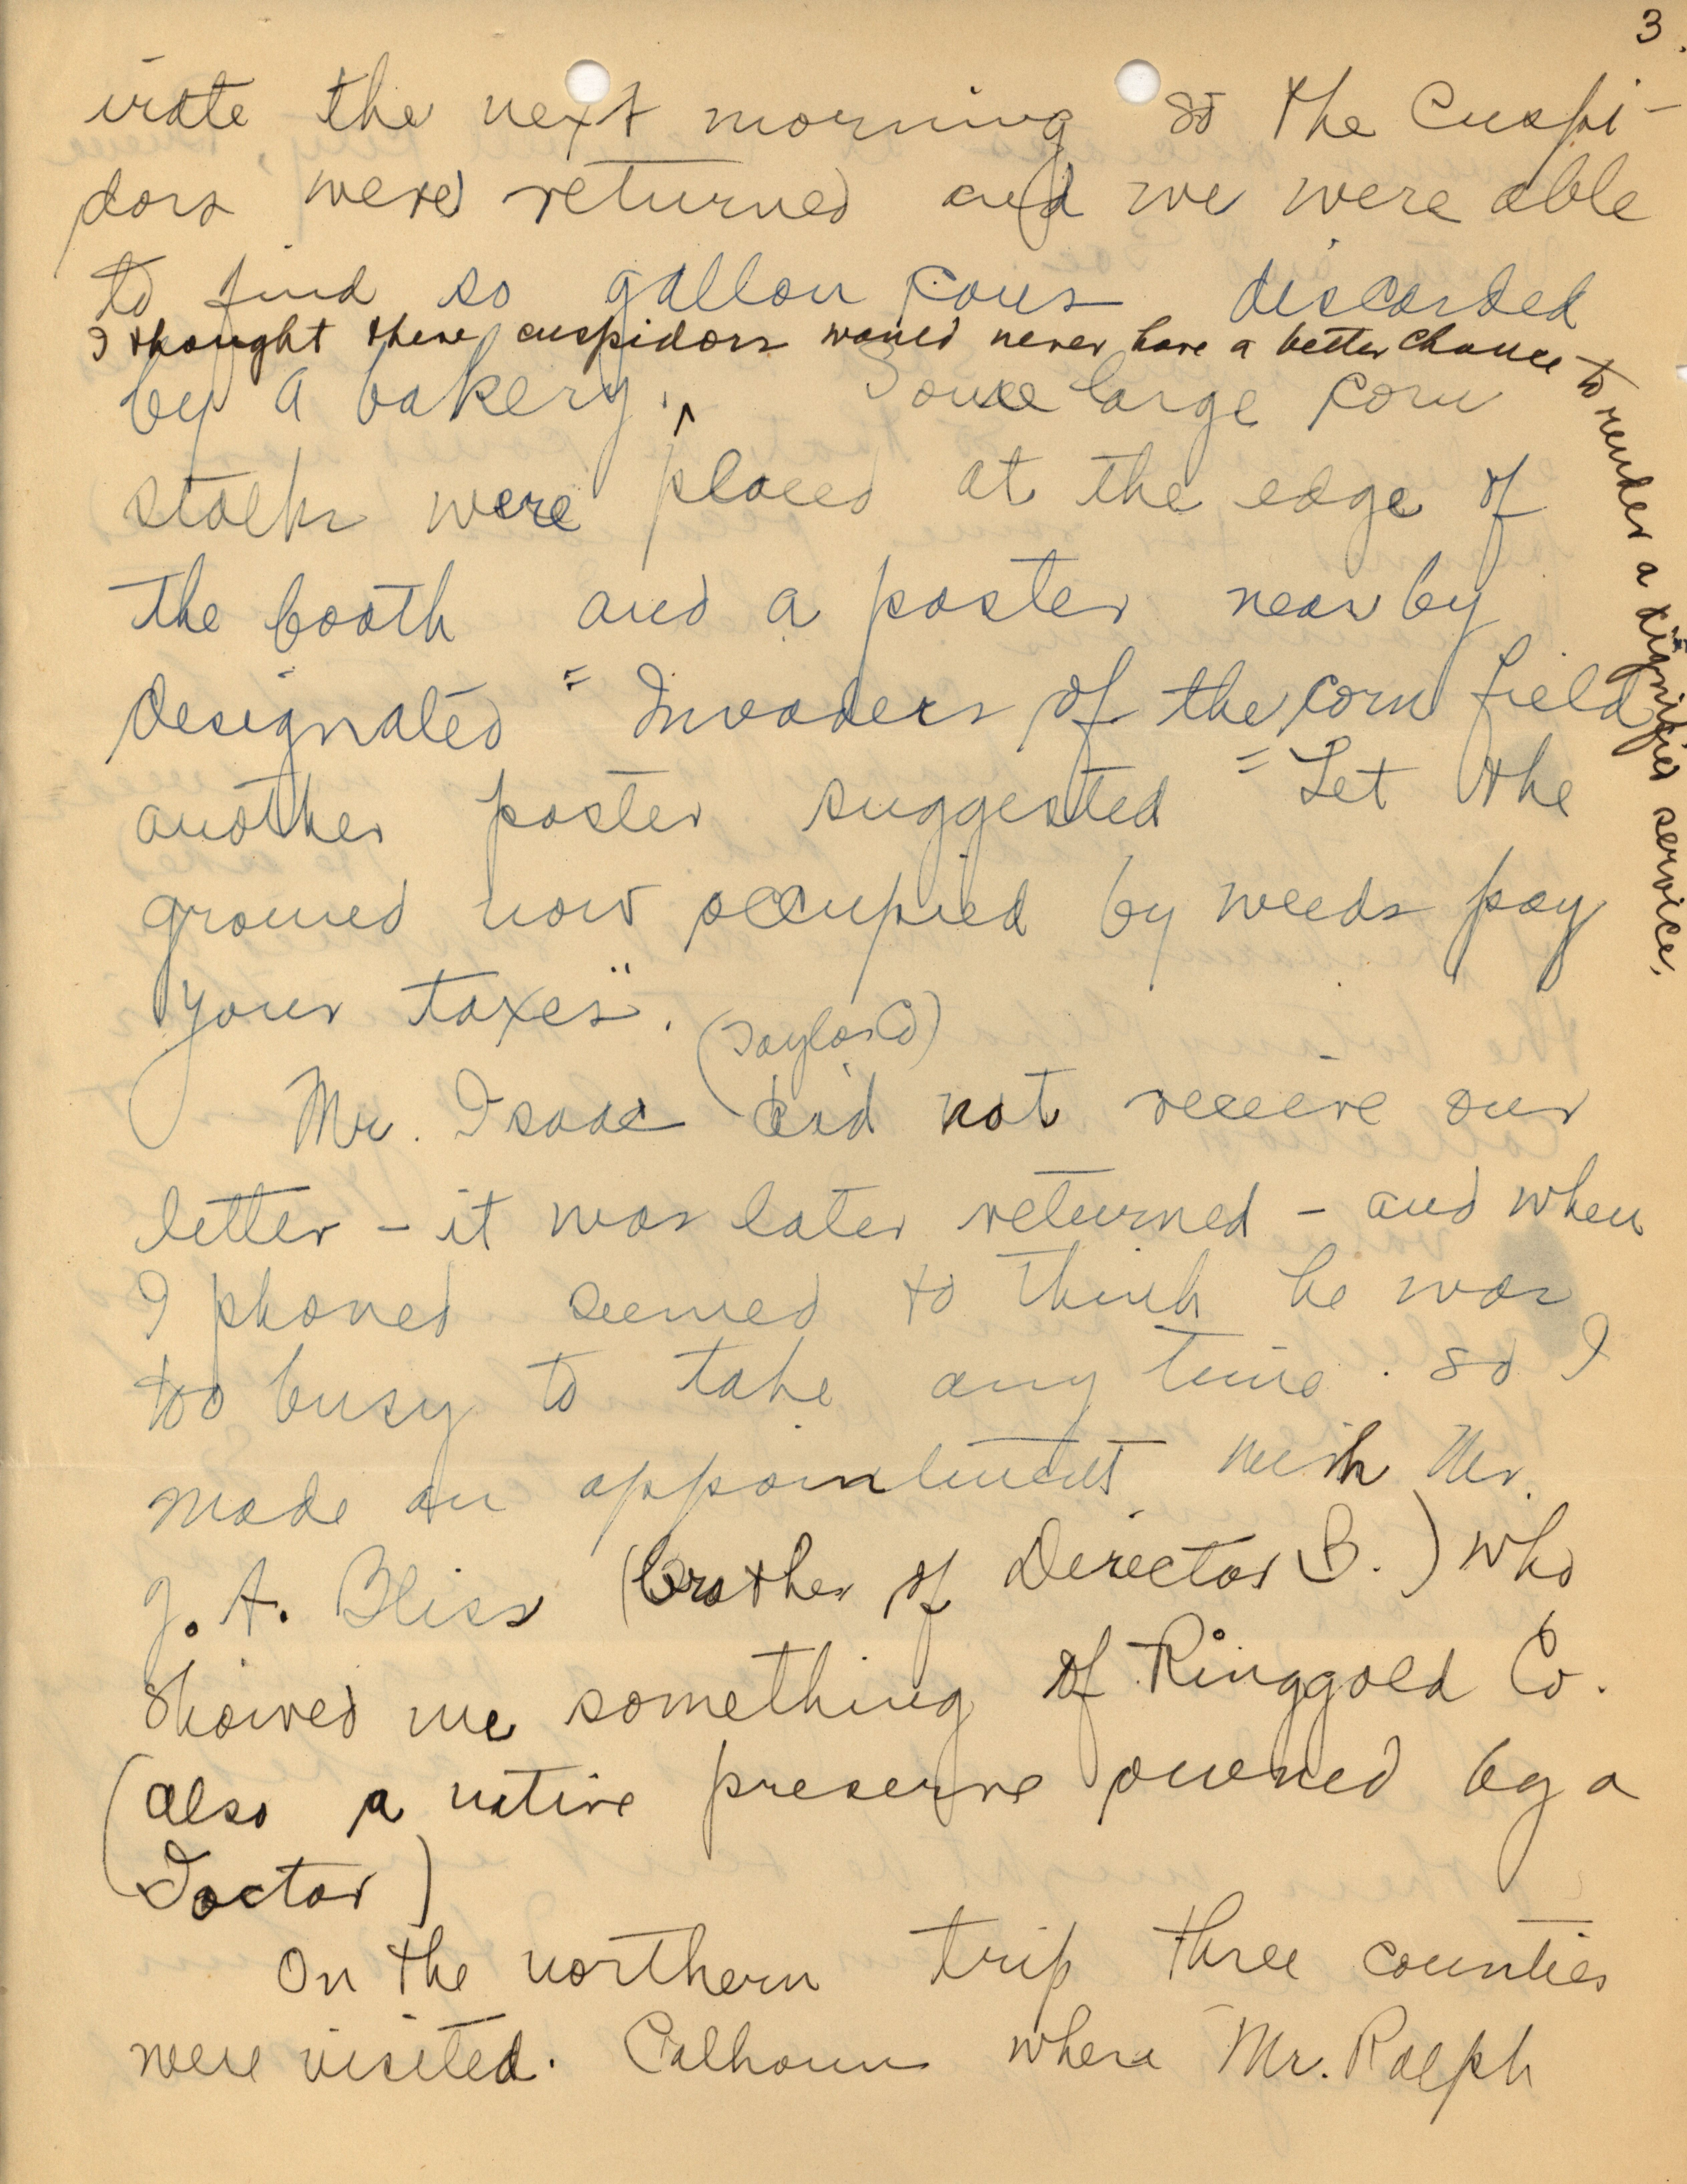 3.
irate the next morning so the Cuspi-
dors were returned and we were able
to find so gallon cans discarded
I thought these cuspidors would never have a better chance to render a dignified service.
by a bakery. Some large corn
stalks were placed at the edge of
the booth and a poster near by
designated "Invaders of the corn field
another poster suggested "Let the
ground now occupied by weeds pay
your taxes".
(Taylor Co)
Mr. Isaac did not receive our
letter - it was later returned - and when
I phoned seemed to think he was
too busy to take any time. so I
made an appointment with Mr.
J. A. Bliss (brother of Director B.) who
showed me something of Ringgold Co.
(also a native preserve owned by a
Doctor)
On the northern trip three counties
were visited. Calhoun where Mr. Ralph